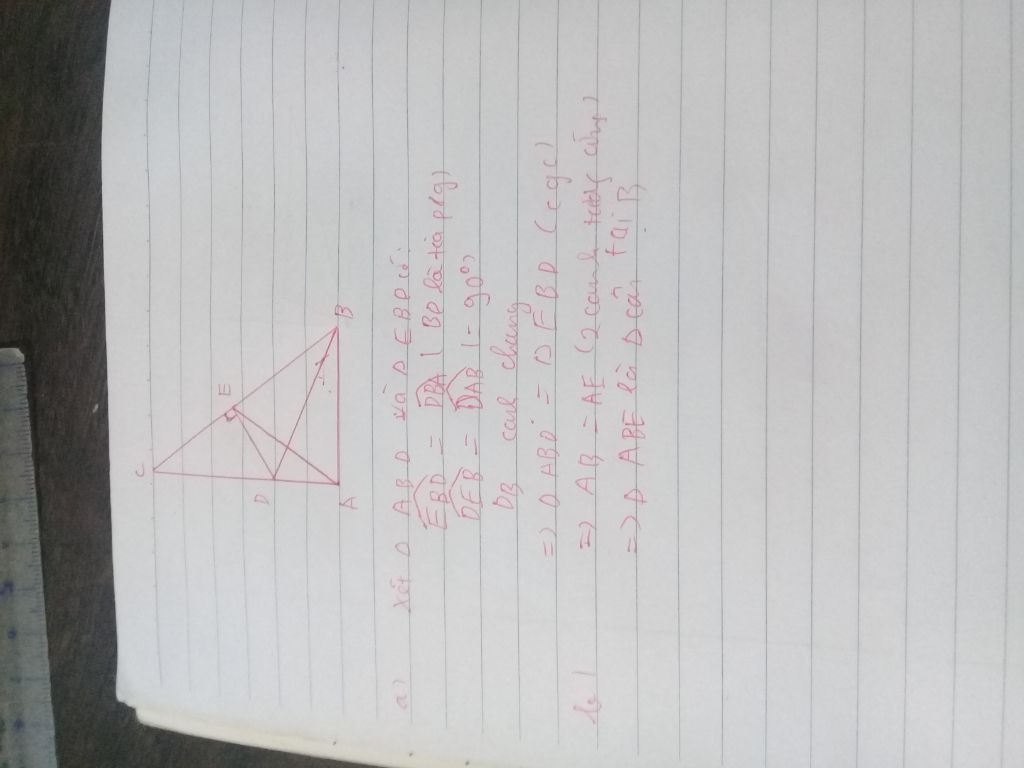 C
E
D
A
B
a) Xét Δ ABD và Δ EBD có:
EBD = DBA ( BD là tia p/g)
DEB = DAB ( = 90°)
DB cạnh chung
=> Δ ABD = Δ EBD (cgc)
b) => AB = AE (2 cạnh tương ứng)
=> Δ ABE là Δ cân tại B